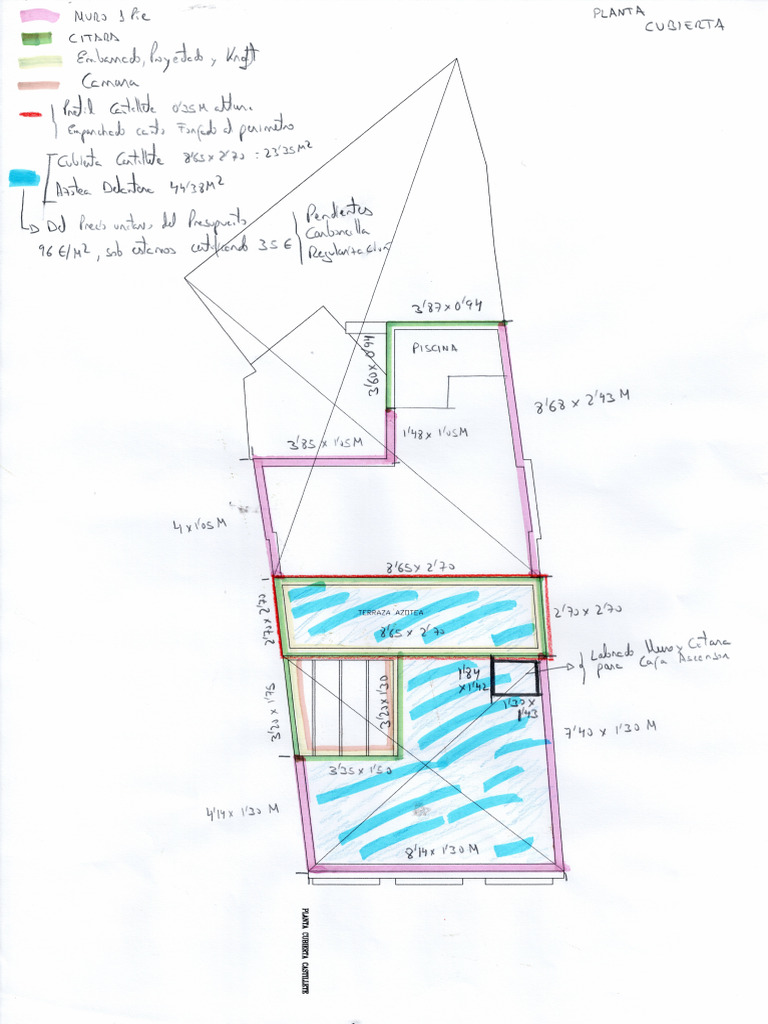 PLANTA
CUBIERTA
MURO 1 Pie
CITARA
Embarrado, Proyectado y Knoff
Camara
Pretil Castillete 0'35M altura
Empanchado canto Forjado al perimetro
Cubierta Castillete 8'65 x 2'70 : 23'35 M²
Azotea Delantera 44'38 M²
Del Precio unitario del Presupuesto
96 €/M², solo estamos certificando 35 €
Pendientes
Carboncillo
Regularización
3'87 x 0'94
3'60 x 0'94
PISCINA
8'68 x 2'43 M
3'85 x 1'05 M
1'48 x 1'05 M
4 x 1'05 M
8'65 x 2'70
2'70 x 2'70
TERRAZA AZOTEA
8'65 x 2'70
2'70 x 2'70
Labrado Muro y Citara
para Caja Ascensor
1'84
x 1'42
1'30 x
1'43
3'20 x 1'75
3'20 x 1'30
3'35 x 1'50
7'40 x 1'30 M
4'14 x 1'30 M
8'14 x 1'30 M
PLANTA CUBIERTA CASTILLETE